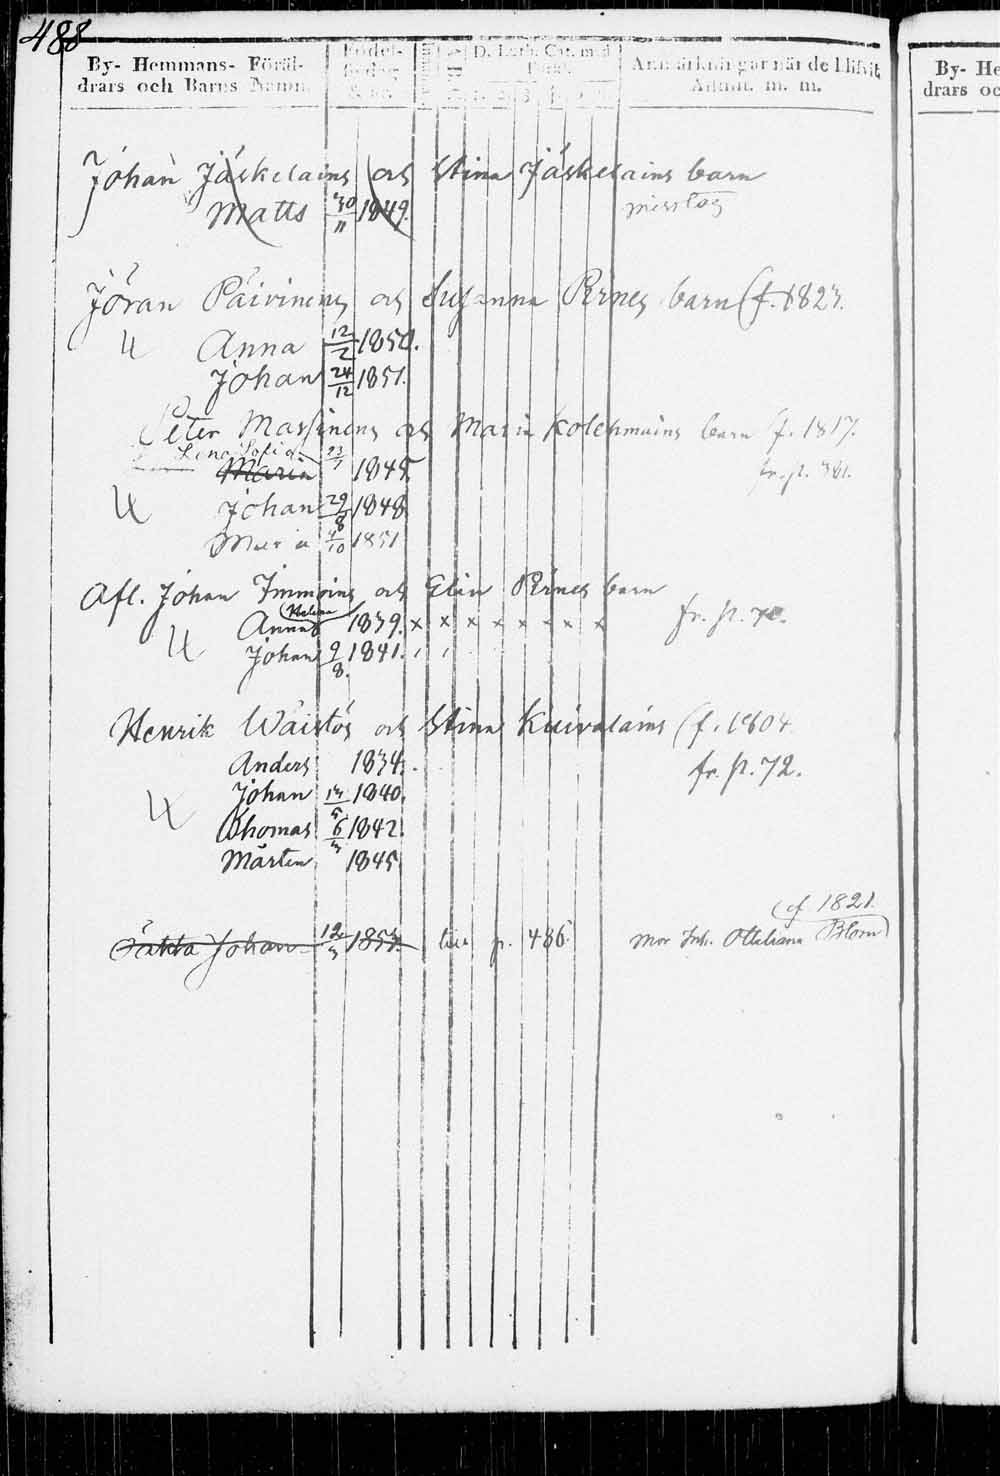 488
By- Hemmans- Föräl-
drars och Barns Namn.
Födel-
D. Luth. Cat. med
Anmärkningar när de blifvit
Admit. m. m.
By- He
drars oc
Johan Jäskelains och Stina Jäskelains barn
Matts 30/11 1849.
misstag
Jöran Päivinens och Susanna Pirnes barn (f. 1823.
Anna 12/2 1850.
Johan 24/12 1851.
Peter Massinens och Maria Kolehmains barn f. 1817.
Lena Sofia 23/1
Maria 1845.
fr. p. 381.
Johan 29/8 1848
Maria 4/10 1851
Afl. Johan Immoins och Elin Pirnes barn
Helena
Anna 1839. x x x x x x x x fr. p. 70.
Johan 9/8 1841.
Henrik Wäistös och Stina Kuivalains (f. 1804
Anders 1834.
fr. p. 72.
Johan 13/5 1840.
Thomas 6/3 1842.
Mårten 1845
(f 1821.
Johan 12/3 1853. p. 486. mor Inh. Otteliana Blom